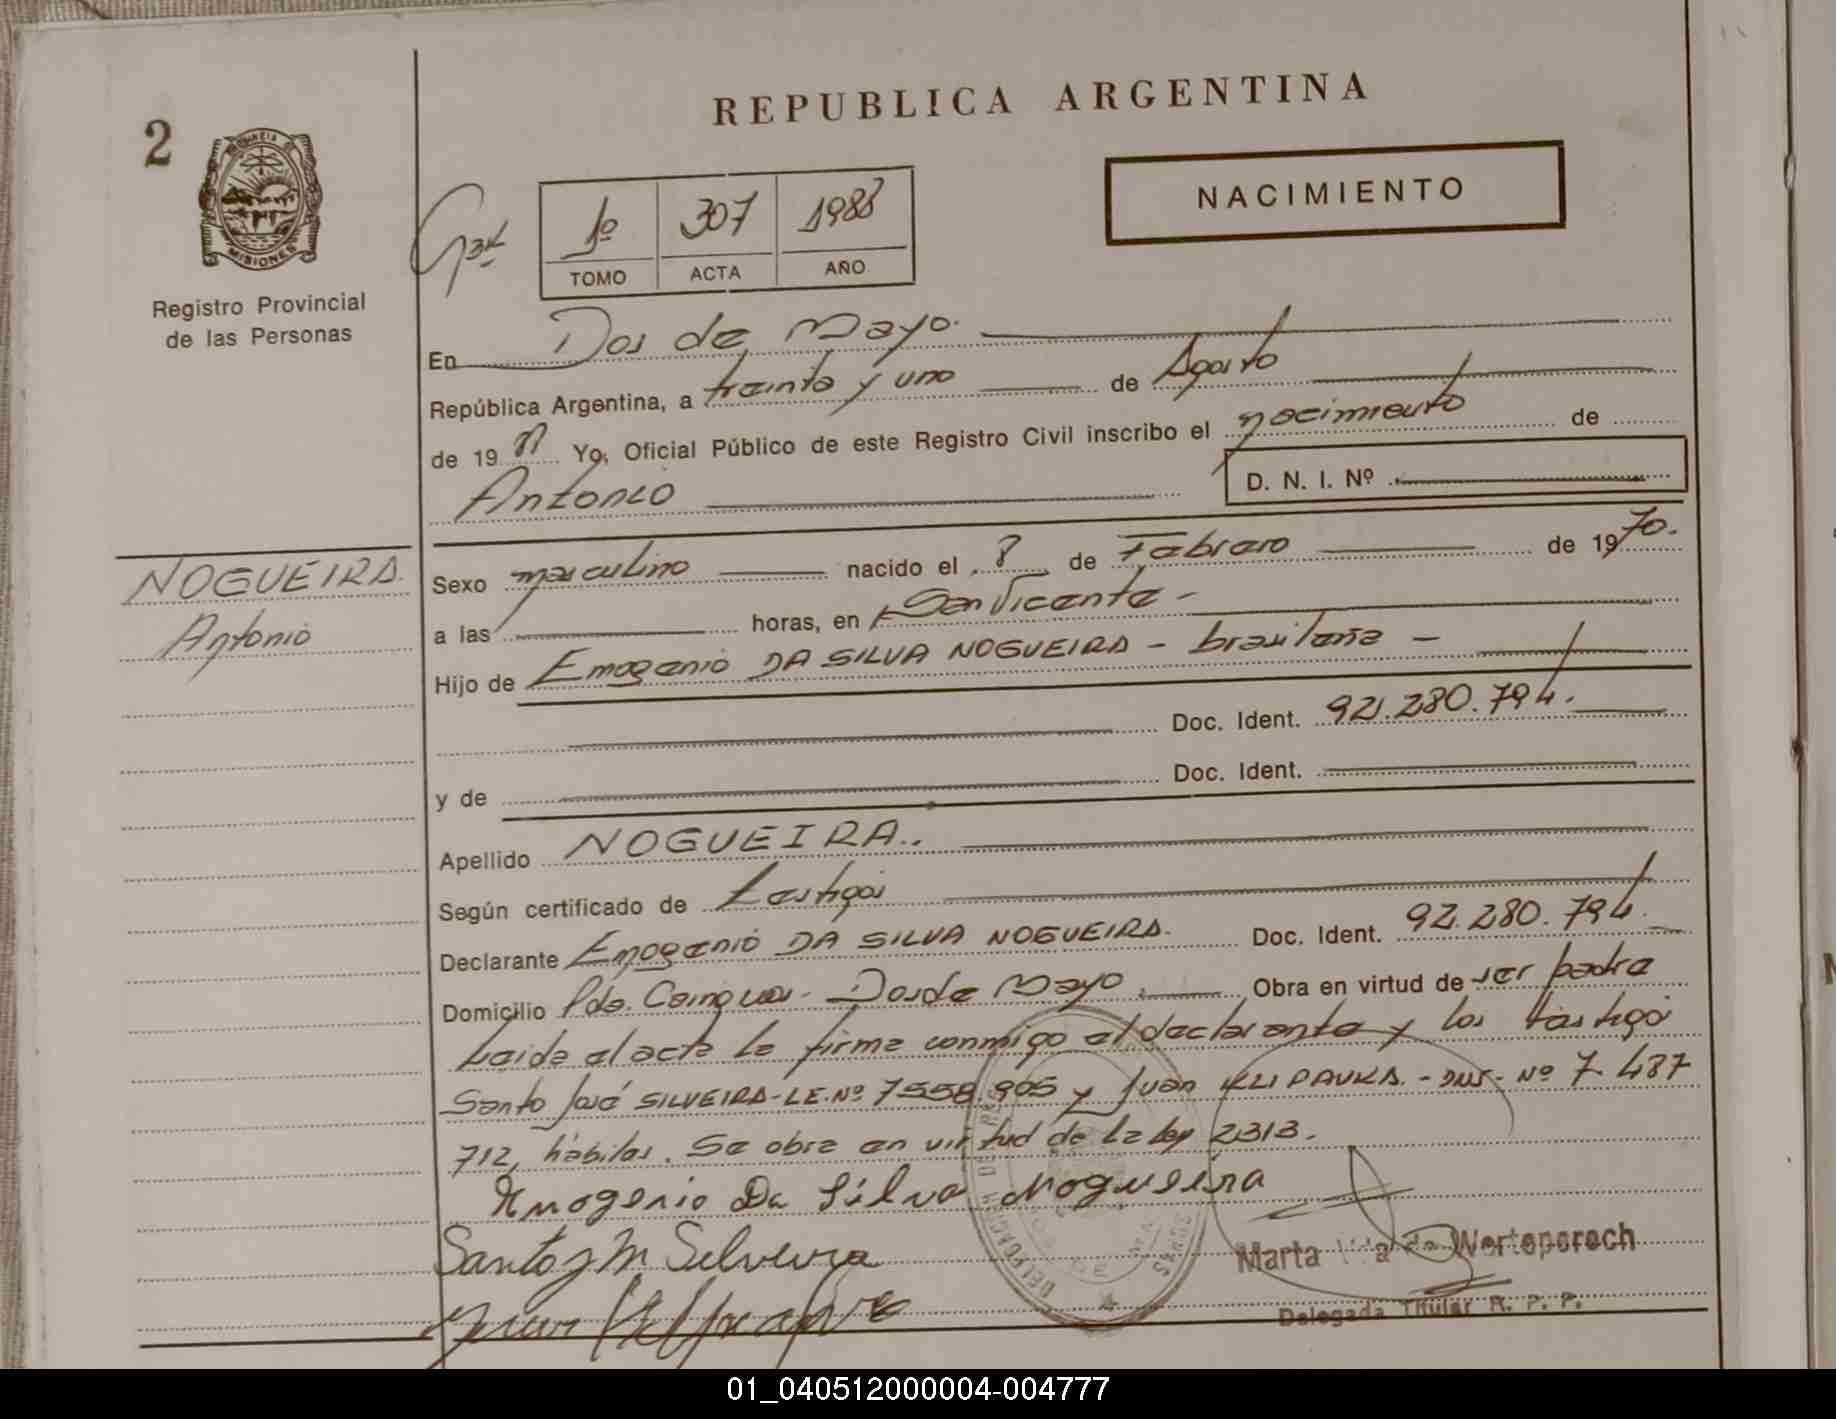 REPUBLICA ARGENTINA
2
PROVINCIA D
MISIONES
Registro Provincial
de las Personas
1º 307 1988
TOMO ACTA AÑO
NACIMIENTO
En Dos de Mayo.
República Argentina, a treinta y uno de Agosto
de 19 88 Yo, Oficial Público de este Registro Civil inscribo el nacimiento de
Antonio D. N. I. Nº
NOGUEIRA
Antonio
Sexo masculino nacido el 8 de Febrero de 1970.
a las horas, en San Vicente -
Hijo de Emogenio DA SILVA NOGUEIRA - brasileña -
Doc. Ident. 92.280.794.
y de Doc. Ident.
Apellido NOGUEIRA.
Según certificado de testigos
Declarante Emogenio DA SILVA NOGUEIRA. Doc. Ident. 92.280.794.
Domicilio Pdo. Cainguas - Dos de Mayo Obra en virtud de ser padre
Leida el acta la firma conmigo el declarante y los testigo
Santo José SILVEIRA-LE.Nº 7558.905 y Juan KLIPAUKA. - DNI- Nº 7.487
712, hábiles. Se obra en virtud de la ley 2313.
Emogenio Da Silva Nogueira
Santos M Silveira
Marta Werteperech
Delegada Titular R. P. P.
01_040512000004-004777